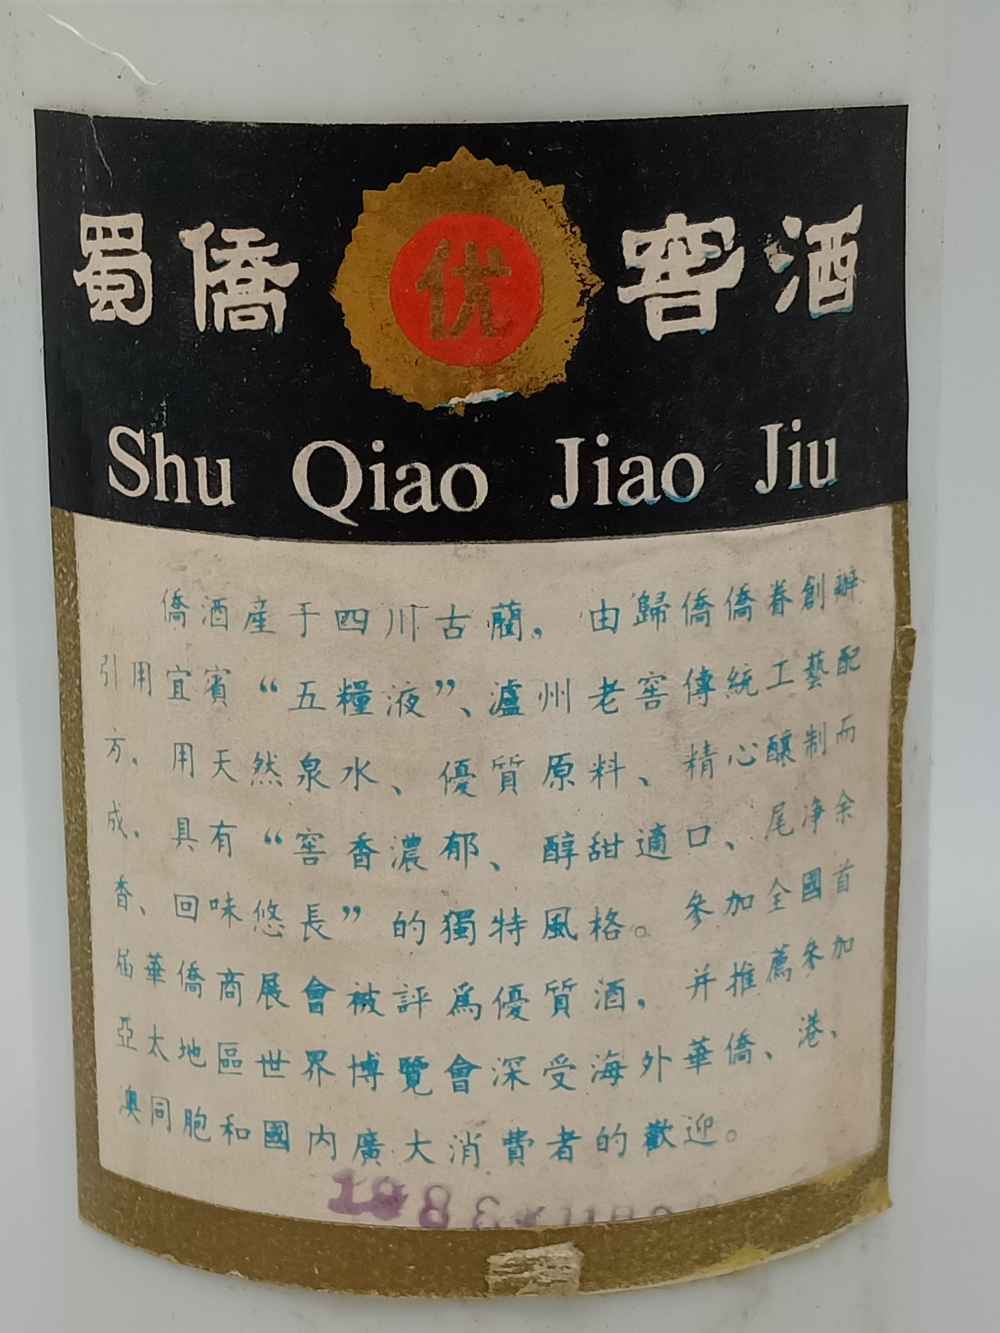 蜀僑 优 窖酒
Shu Qiao Jiao Jiu
僑酒産于四川古藺，由歸僑僑眷創辦
引用宜賓“五糧液”、瀘州老窖傳統工藝配
方，用天然泉水、優質原料、精心釀制而
成、具有“窖香濃郁、醇甜適口、尾净余
香、回味悠長”的獨特風格。參加全國首
届華僑商展會被評爲優質酒，并推薦参加
亞太地區世界博覽會深受海外華僑、港、
澳同胞和國内廣大消費者的歡迎。